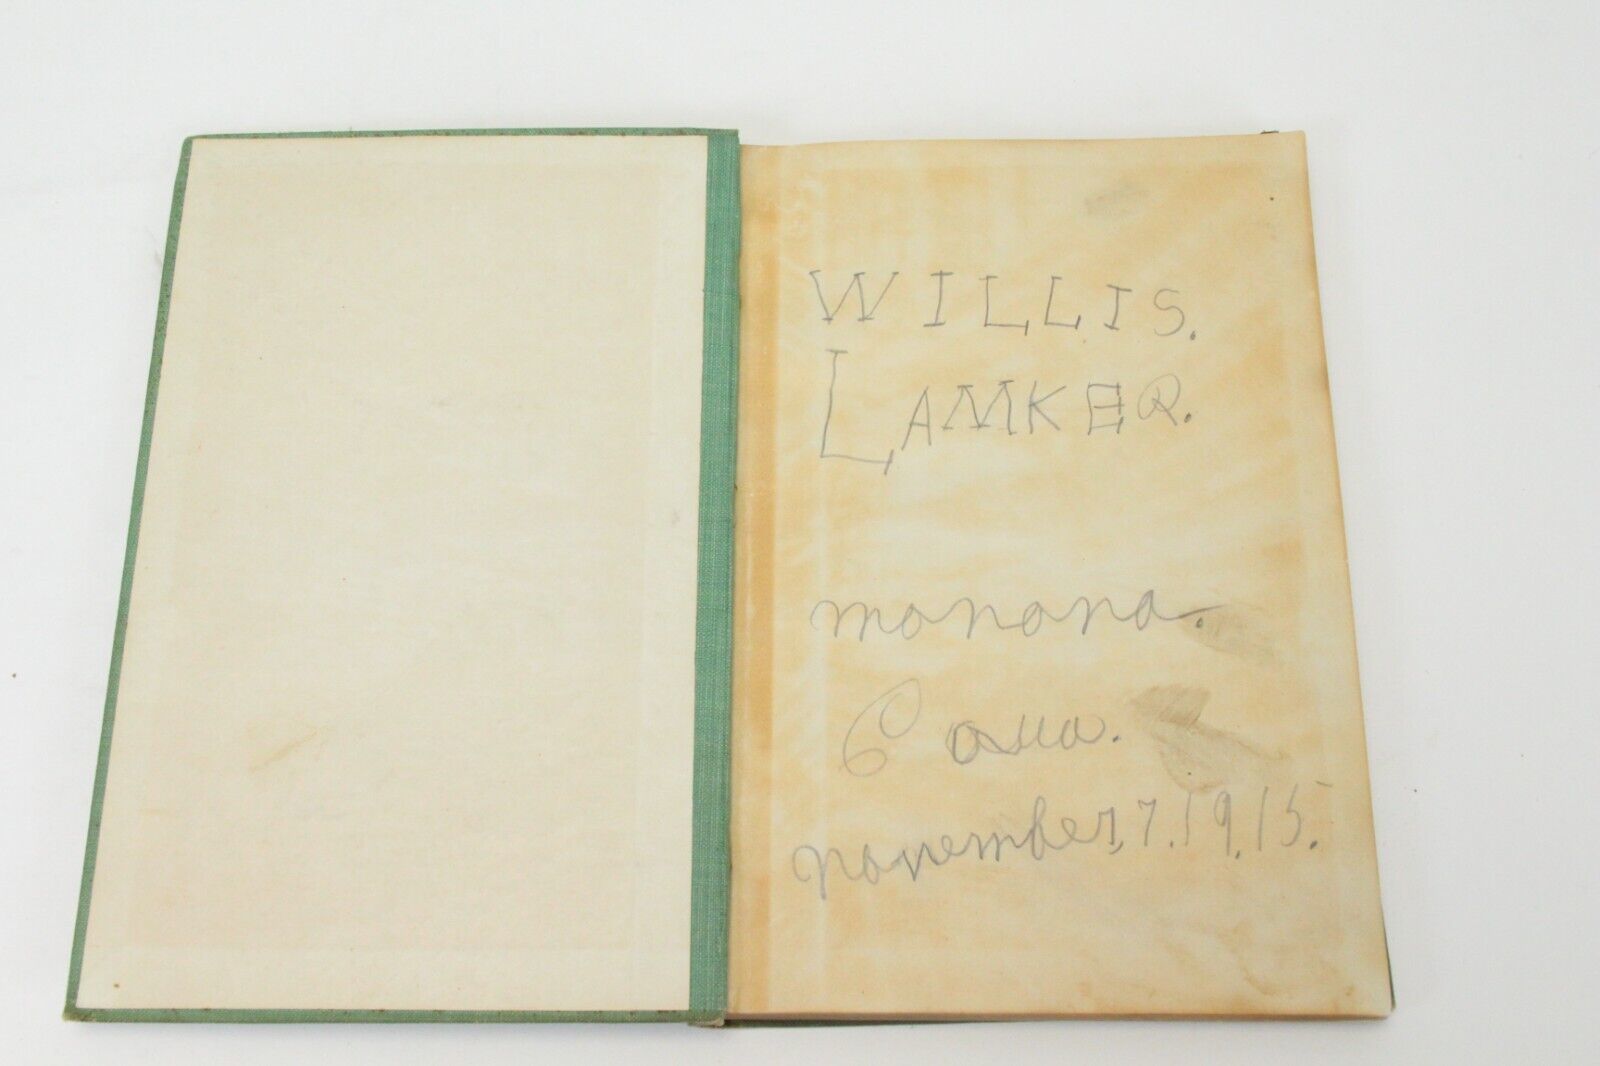 WILLIS.
LAMKER.
monona.
Iowa.
november, 7. 19.15.